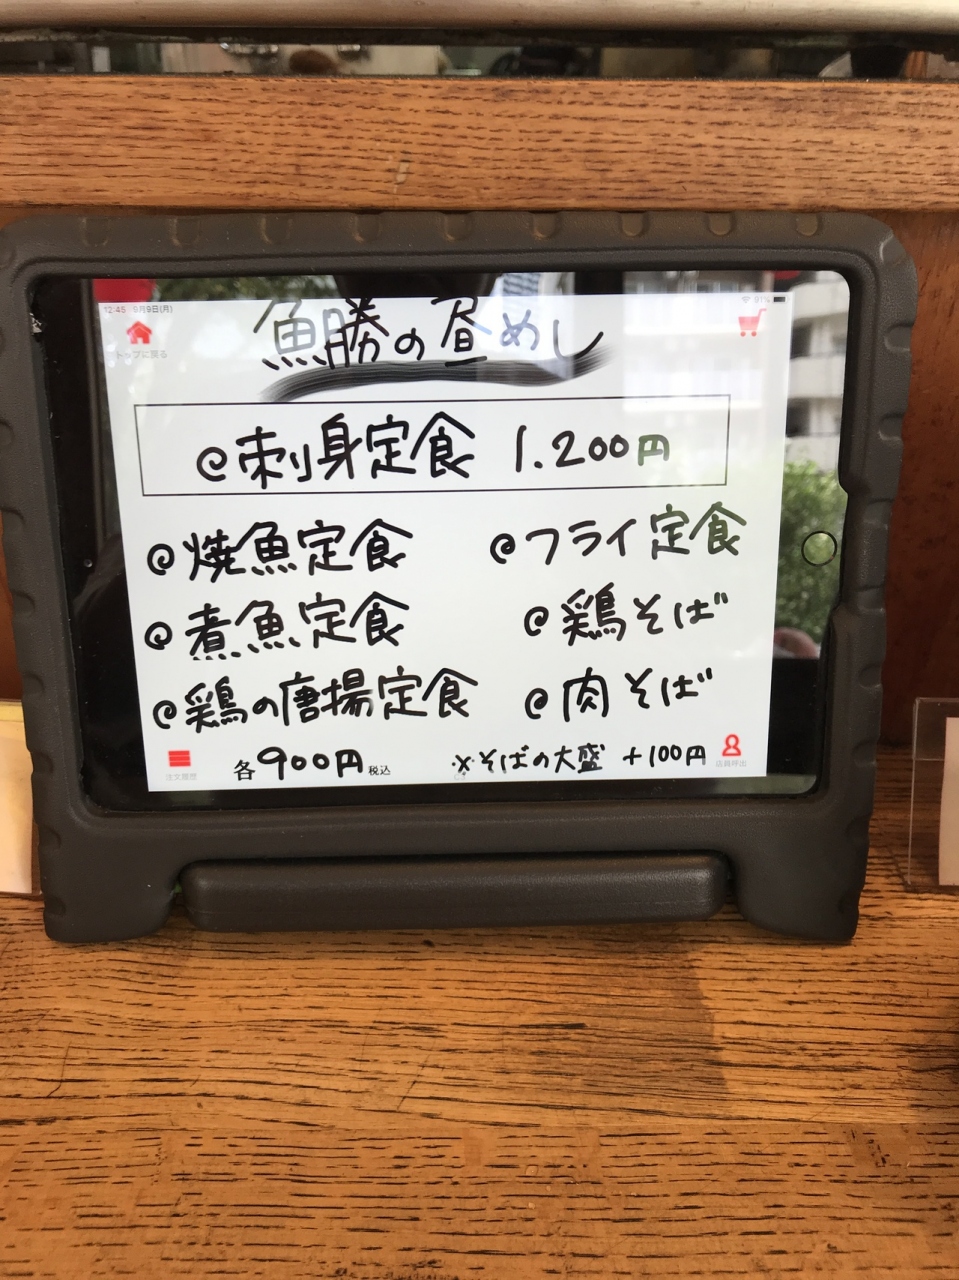 12:45 9月9日(月)
91%
トップに戻る
魚勝の昼めし
@刺身定食 1.200円
@焼魚定食
@煮魚定食
@鶏の唐揚定食
@フライ定食
@鶏そば
@肉そば
各900円 税込
※そばの大盛 +100円
注文履歴
店員呼出